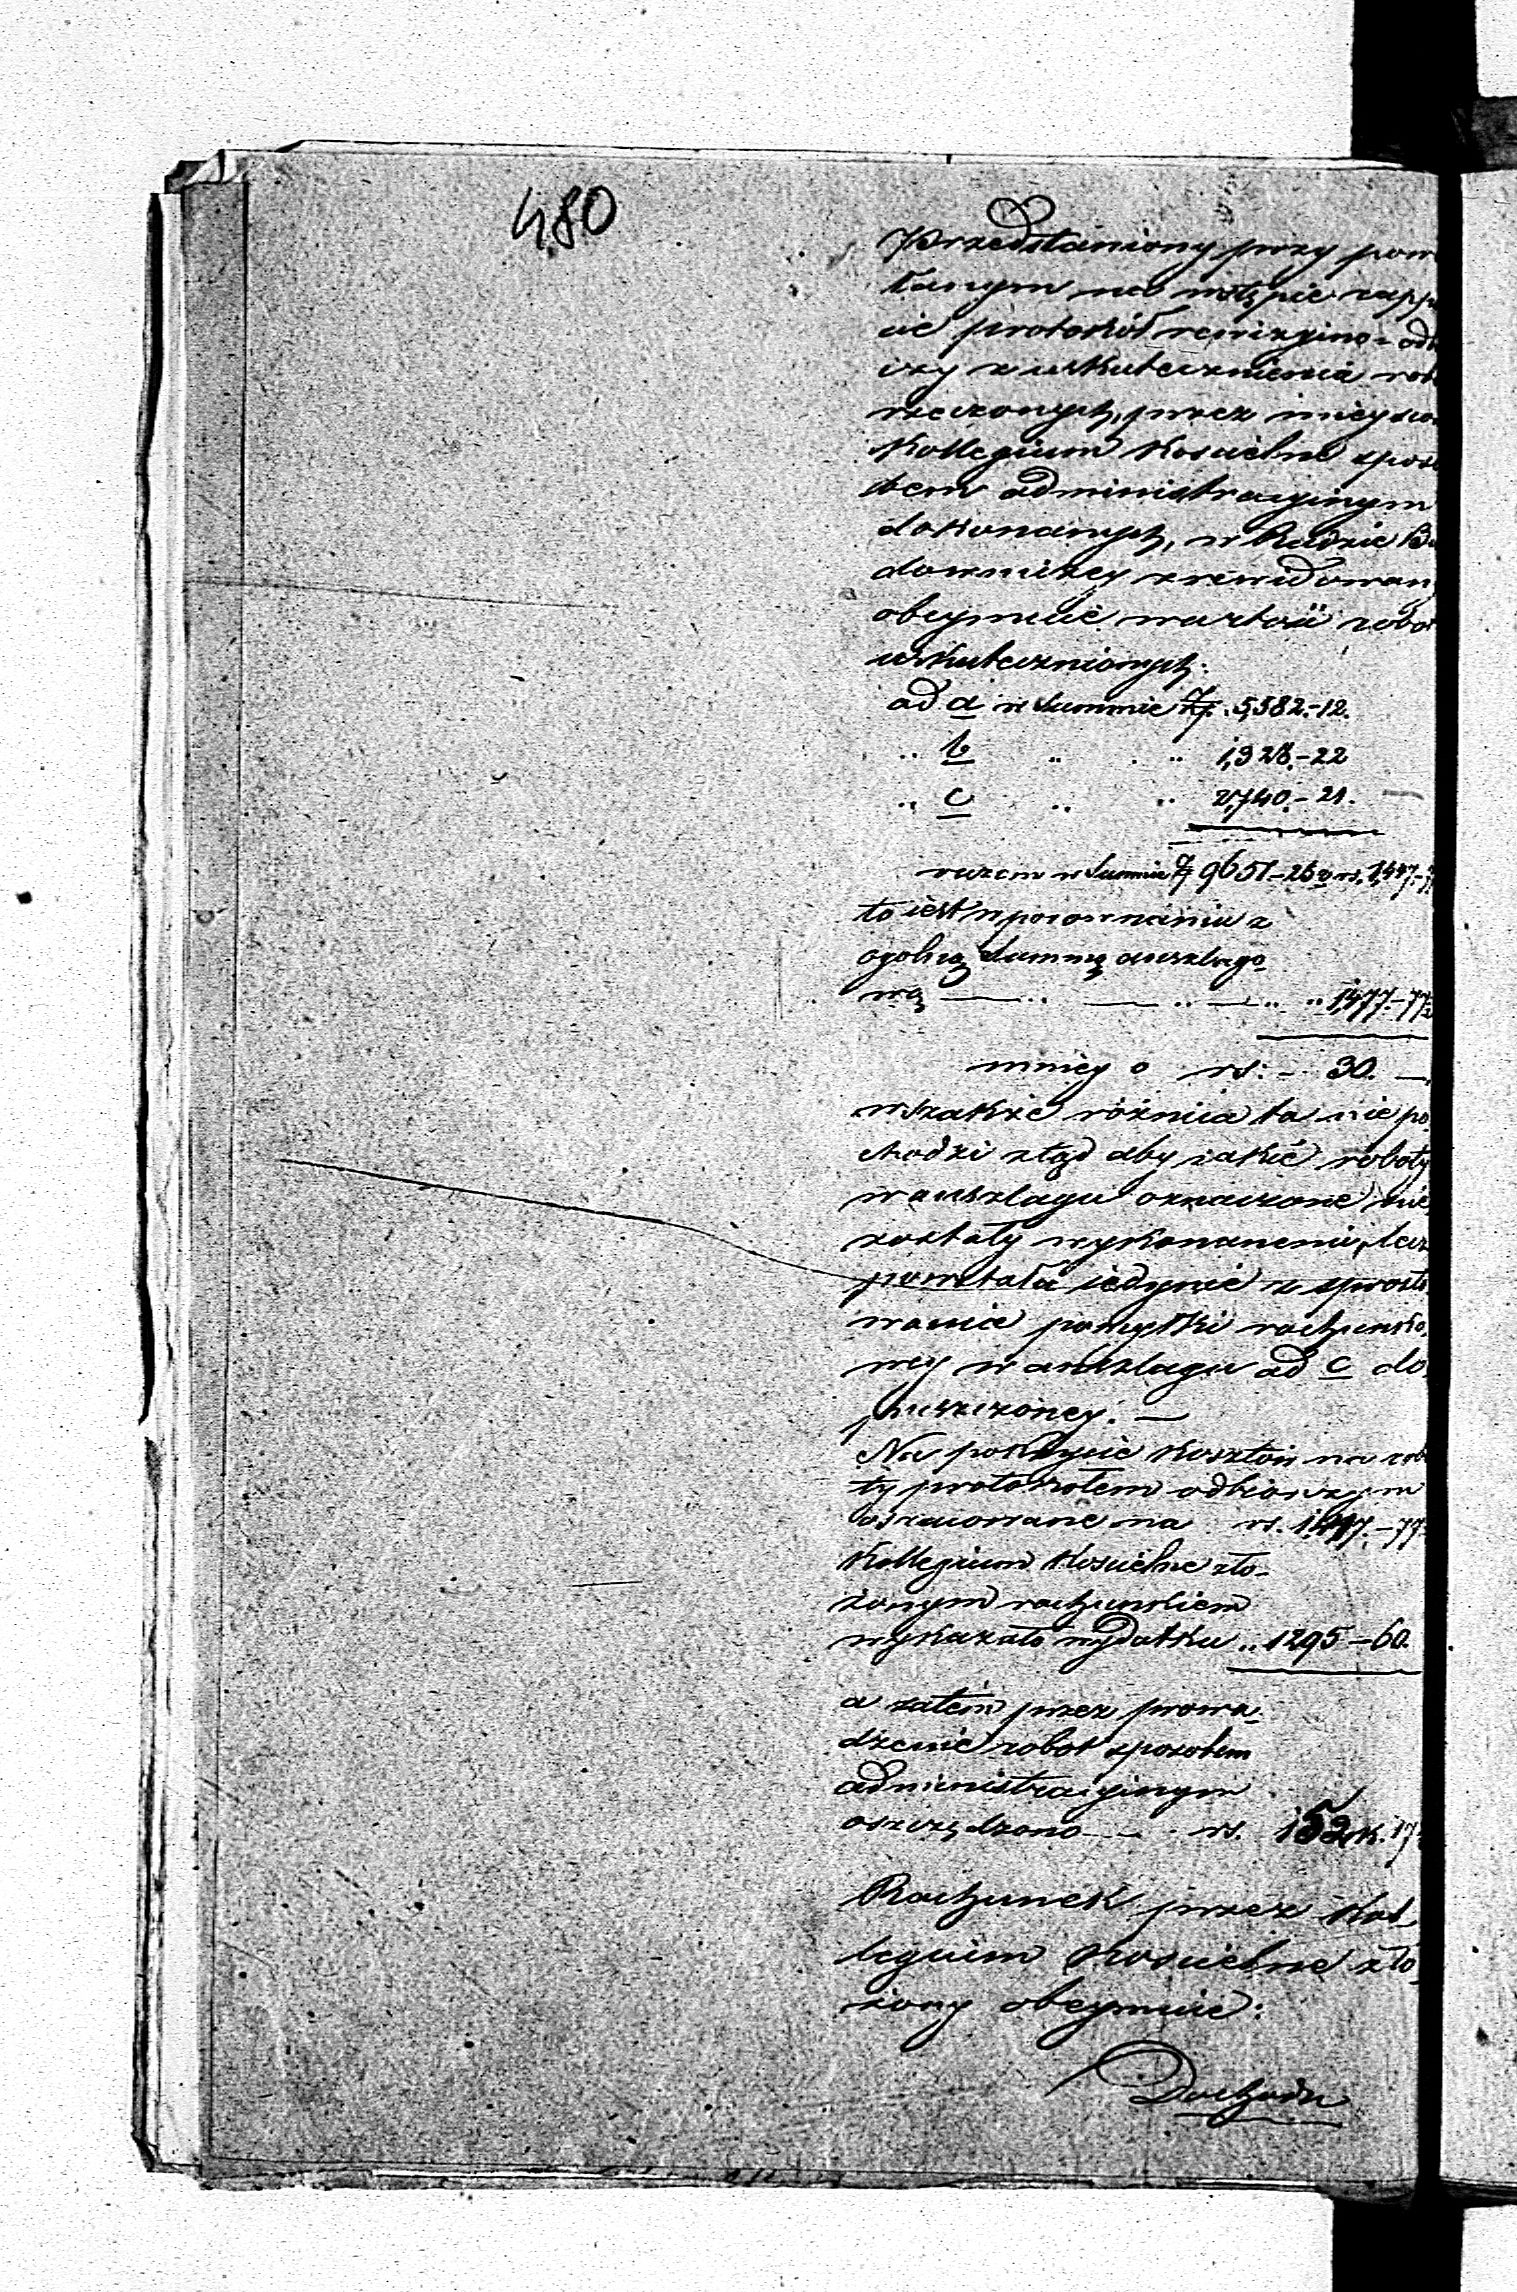 480
Przedstawiony przy powo
łanym na wstępie rappo
cie protokół rewizyino-odb
czy z uskutecznienia rob
rzeczonych, przez mieysco
Kollegium Kościelne sposo
bem administracyinym
dokonanych, w Radzie Bu
downiczey zrewidowany
obeymuie wartość robot
uskutecznionych:
ad a w Summie Zp. 5,582.-12.
„ b „ „ 1,328.-22
„ c „ „ 2,740.-21.
razem w Summie Zp 9651-25 rs. 1,447.-77
to iest w porownaniu z
ogolną Summą anszlago-
wą — „ — „ — „ „ 1,477.-77½
mniey o rs: - 30. —
wszakże różnica ta nie po
chodzi ztąd aby iakie roboty
w anszlagu oznaczone nie
zostały wykonanemi, lecz
powstała iedynie z sprosto
wania pomyłki rachunko,
wey w anszlagu ad c do
puszczoney. —
Na pokrycie kosztów na rob
ty protokołem odbiorczym
oszacowane na rs. 1447.-77
Kollegium Kościelne zło-
żonym rachunkiem
wykazało wydatku „ 1295-60.
a zatem przez prowa-
dzenie robot sposobem
administracyinym
oszczędzono — rs. 152 k. 17
Rachunek przez Kol,
legium Kościelne zło-
żony obeymuie:
Dochodu